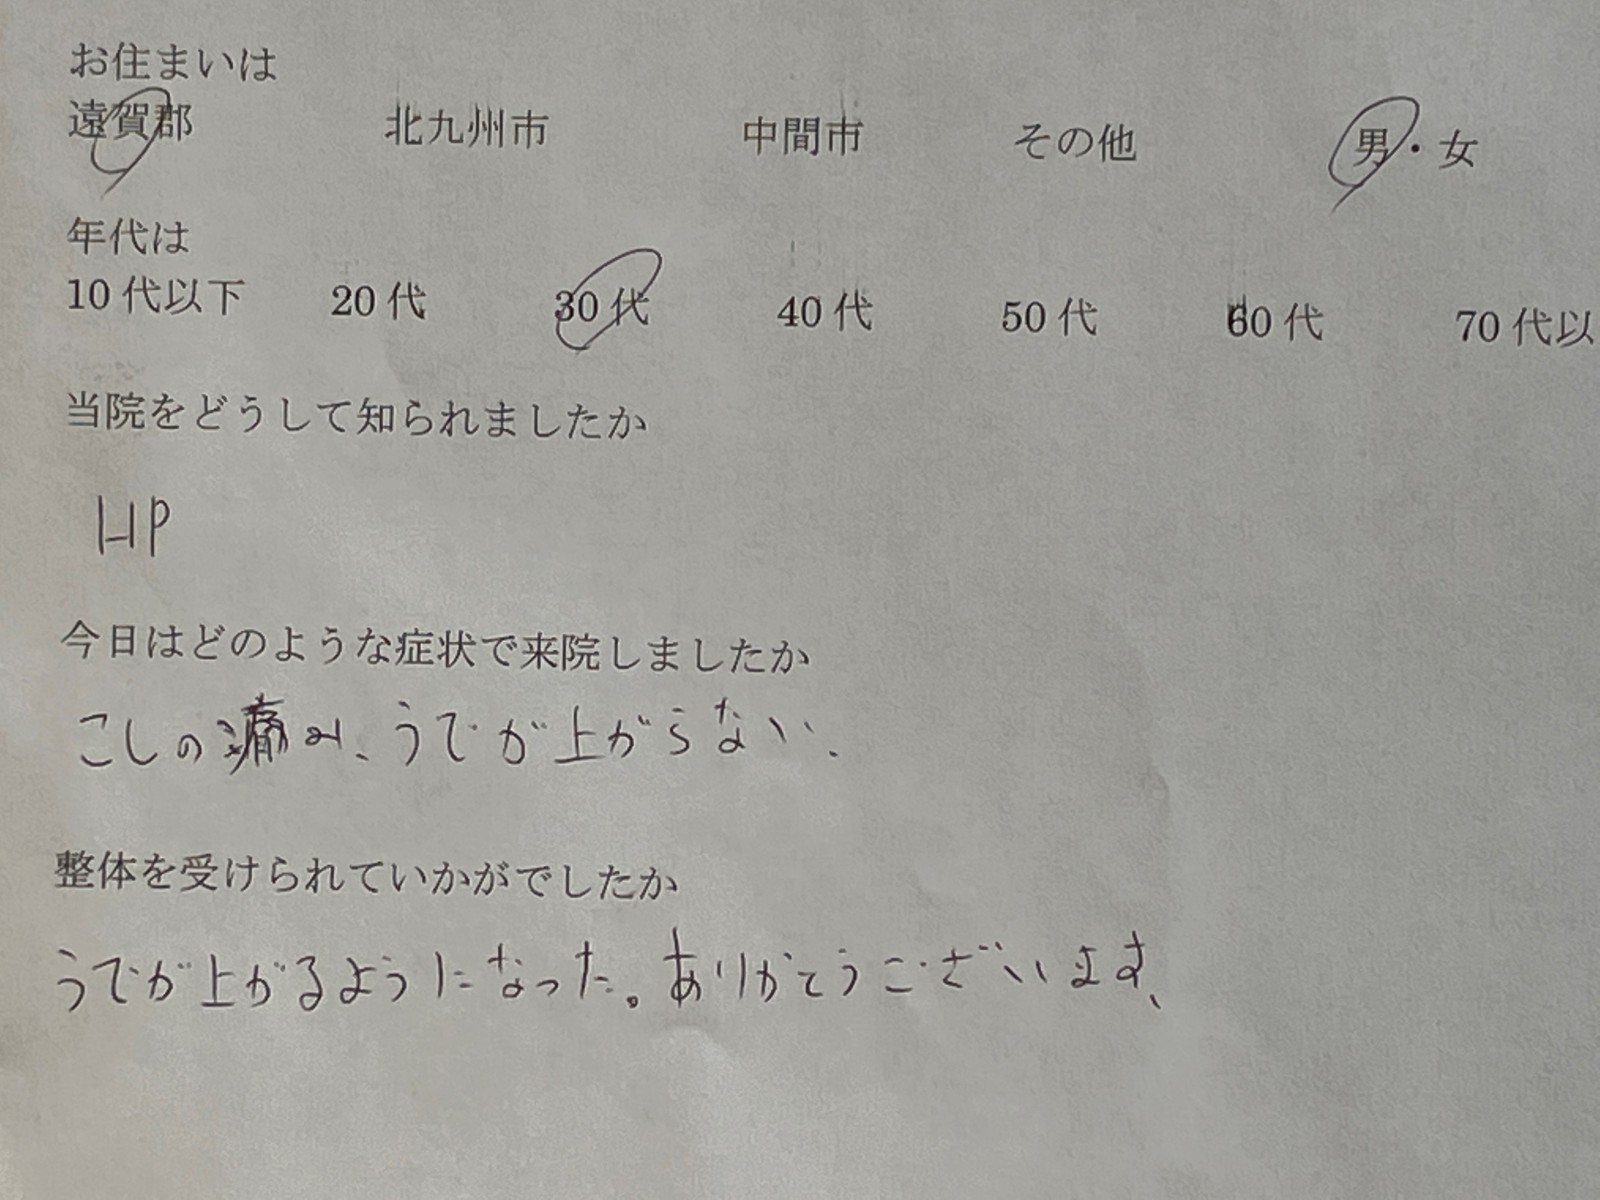 お住まいは
遠賀郡 北九州市 中間市 その他 男・女
年代は
10代以下 20代 30代 40代 50代 60代 70代以
当院をどうして知られましたか
HP
今日はどのような症状で来院しましたか
こしの痛み、うでが上がらない、
整体を受けられていかがでしたか
うでが上がるようになった。ありがとうございます、